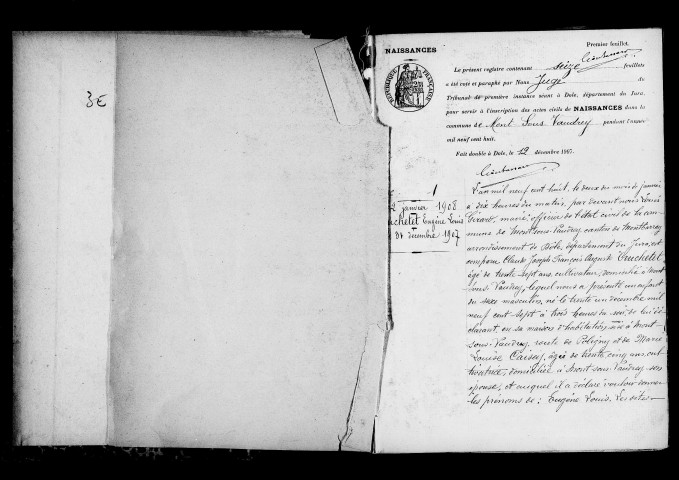 3E
NAISSANCES
Premier feuillet.
RÉPUBLIQUE FRANÇAISE
Le présent registre contenant seize feuillets
a été coté et paraphé par Nous Juge du
Tribunal de première instance séant à Dole, département du Jura,
pour servir à l'inscription des actes civils de NAISSANCES dans la
commune de Mont-Sous-Vaudrey pendant l'année
mil neuf cent huit.
Fait double à Dole, le 12 décembre 1907.
1
2 janvier 1908
chelet Eugène Louis
31 décembre 1907
L'an mil neuf cent huit, le deux du mois de janvier
à dix heures du matin, par devant nous Louis
Girard, maire, officier de l'état civil de la com-
mune de Mont-sous-Vaudrey, canton de Montbarrey
arrondissement de Dôle, département du Jura, est
comparu Claude Joseph François Auguste
âgé de trente-sept ans, cultivateur, domicilié à Mont
sous-Vaudrey, lequel nous a présenté un enfant
du sexe masculin, né le trente un décembre mil
neuf cent sept à trois heures du soir de lui dé-
clarant, en sa maison d'habitation, sise à Mont-
sous-Vaudrey, route de Poligny et de Marie
Louise âgée de trente cinq ans, cul-
tivatrice, domiciliée à Mont-sous-Vaudrey son
épouse, et auquel il a déclaré vouloir donner
les prénoms de : Eugène Louis. Les dites